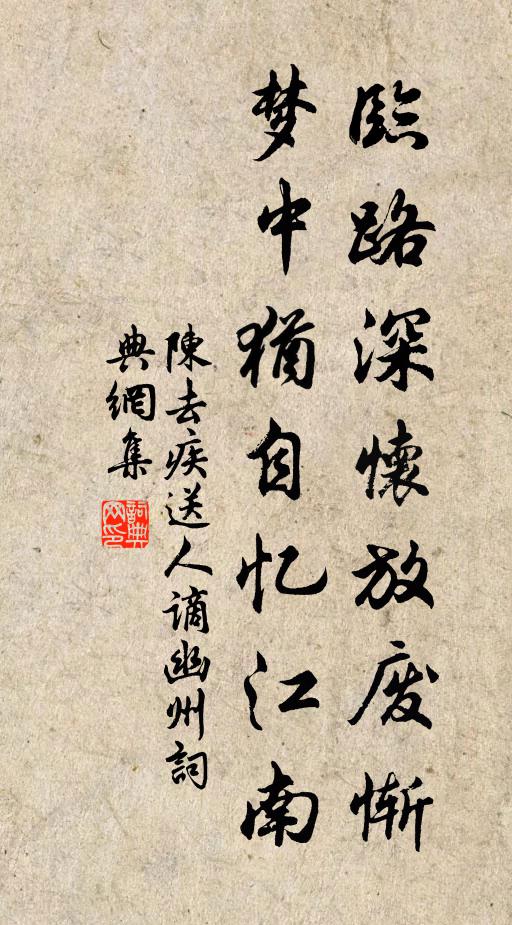 臨路深懷放废惭
梦中猶自忆江南
陳去疾送人謫幽州詞
典網集
詞典网印